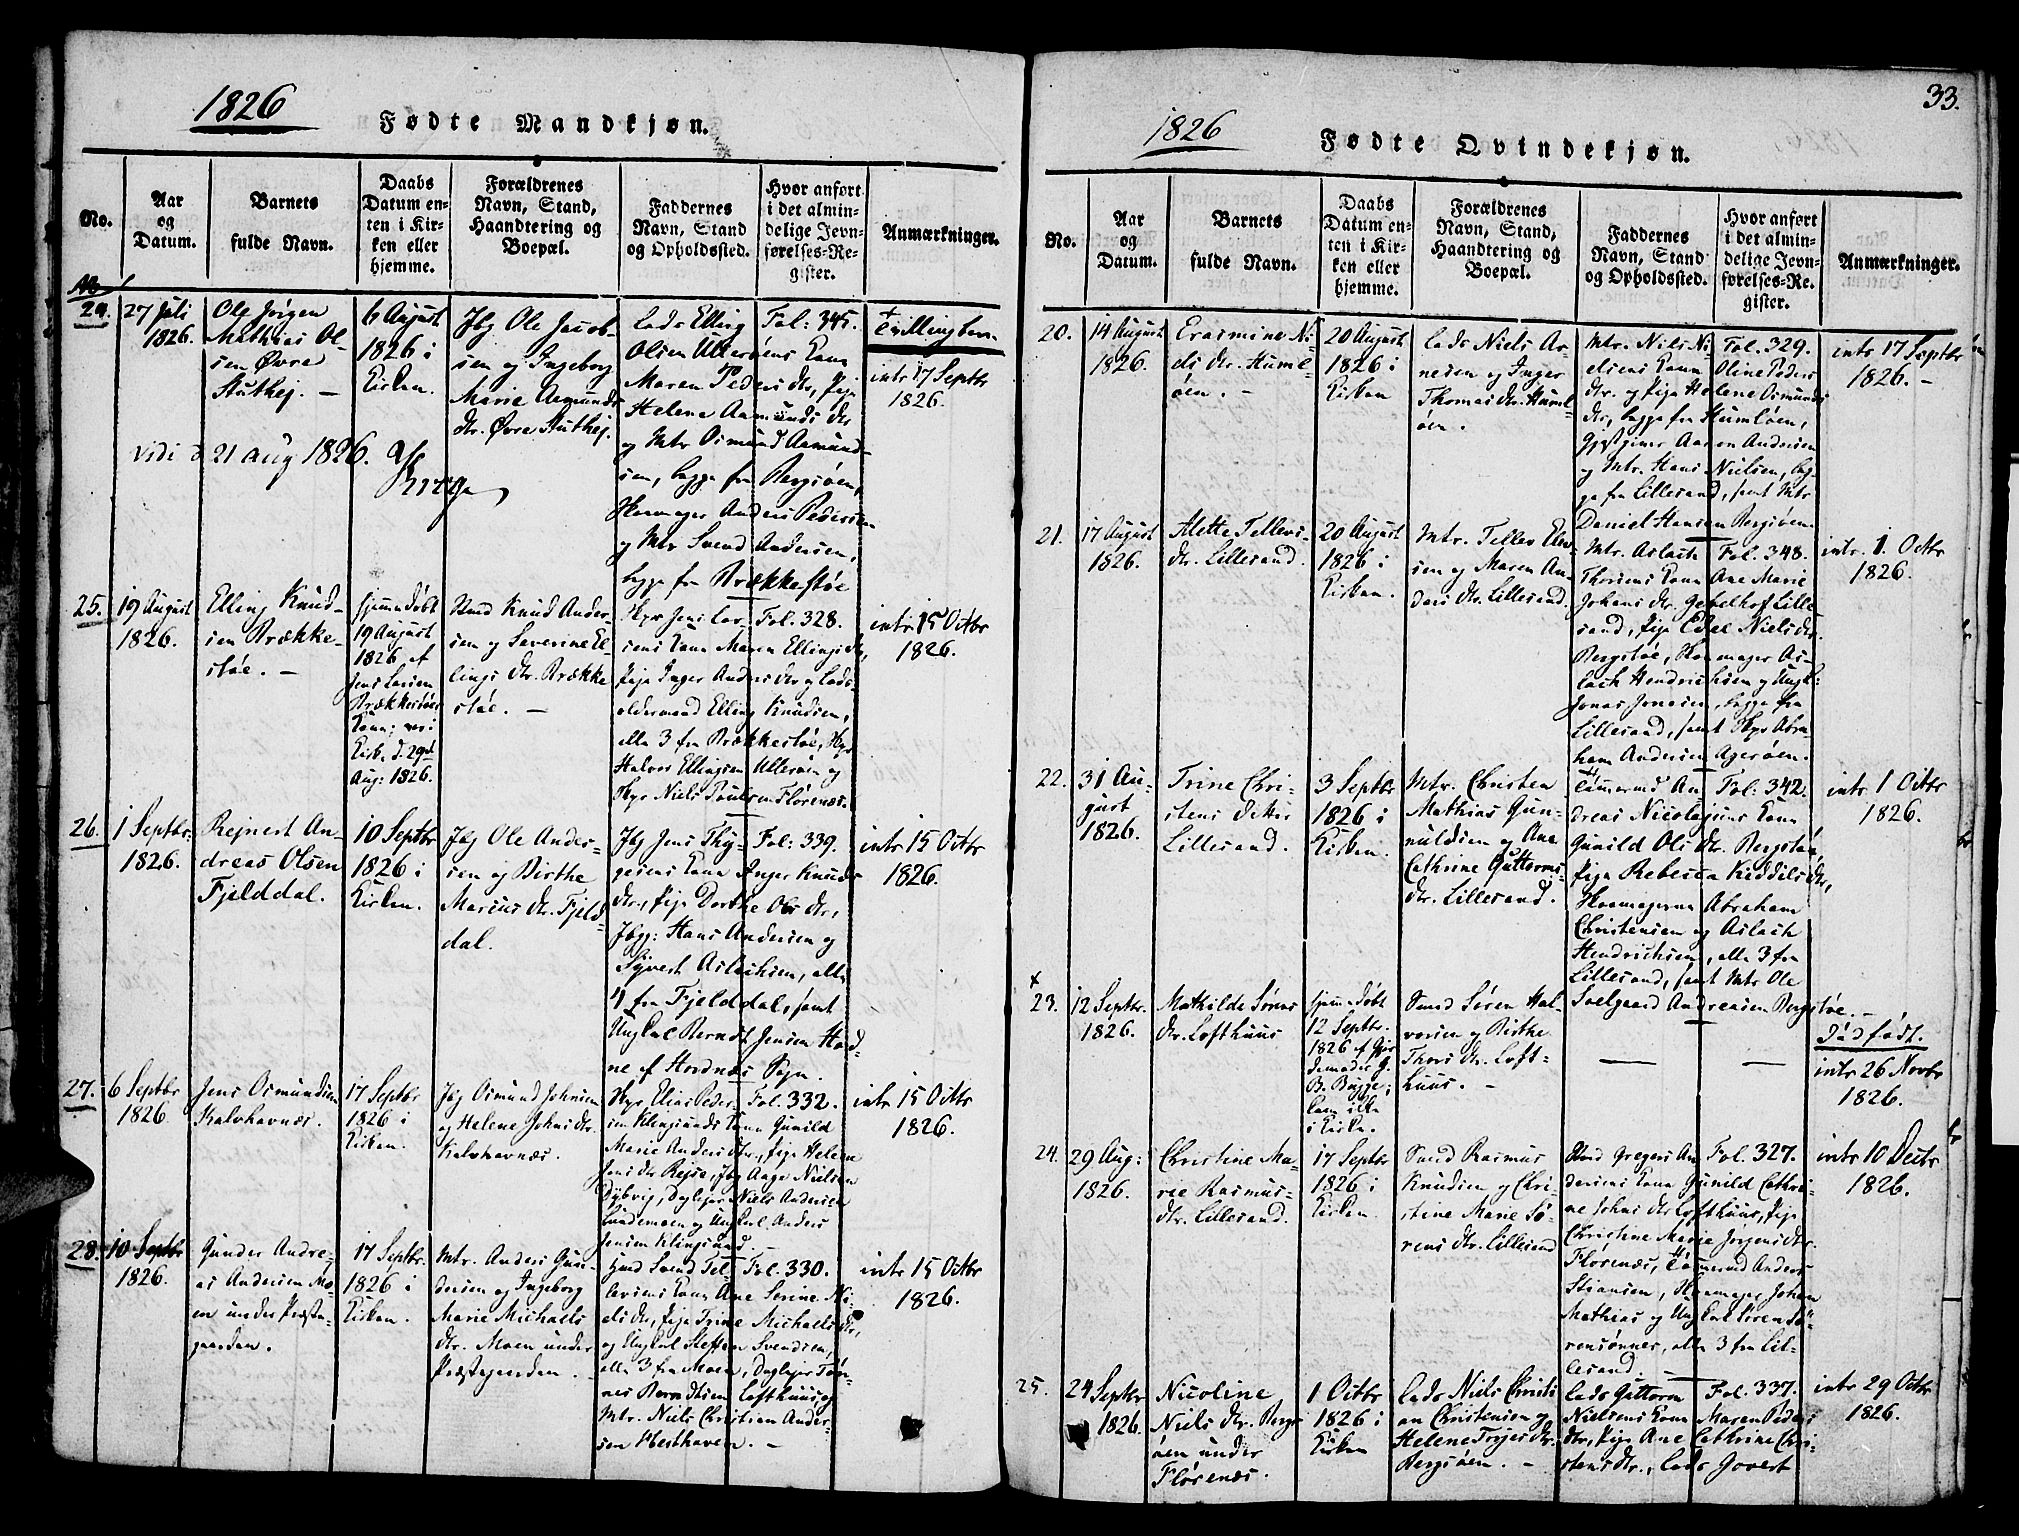 1826
Fødte Mandkjøn.
No.
Aar
og
Datum.
Barnets
fulde Navn.
Daabs
Datum en-
ten i Kir-
ken eller
hjemme.
Forældrenes
Navn, Stand,
Haandtering og
Boepæl.
Faddernes
Navn, Stand
og Opholdssted.
Hvor anført
i det almin-
delige Jevn-
førelses-Re-
gister.
Anmærkninger.
24.
27 Juli
1826.
Ole Jørgen
Mathias Ol-
sen Øvre
Stuthej. —
6 August
1826 i
Kirken.
Jbg Ole Jacob-
sen og Ingeborg
Marie Asmunds
dtr. Øvre Stuthej.
Lods Elling
Olsen Ulleröens Kone
Maren Peders dtr, Pige
Helene Aamunds dtr
og Mtr Osmund Aamund-
sen, begge fra Bergsöen,
Skomager Anders Pedersen
og Mtr Svend Andersen,
begge fra Brækkestöe
Fol: 345.
+
Tvillingbarn.
intr 17 Septbr
1826.
vidi d 21 aug 1826.
25.
19 August
1826.
Elling Knud-
sen Brække-
stöe. —
hjemmedöbt
19 August
1826 af
Jens Larsen
Brækkestöes
Kone; var i
Kirk. d. 29de
Aug: 1826.
Hmd Knud Ander-
sen og Severine El-
lings dtr. Brække
stöe. —
Skpr Jens Lar-
sens Kone Maren Ellings dtr,
Pige Inger Anders dtr og Lods-
oldermand Elling Knudsen,
alle 3 fra Brækkestöe, Skpr
Halvor Ellingsen Ulleröen og
Skpr Niels Poulsen Florenæs.
Fol: 328.
intr 15 Octbr
1826.
26.
1 Septbr.
1826.
Rejnert An-
dreas Olsen
Fjelddal.
10 Septbr
1826 i
Kirken.
Jbg Ole Ander-
sen og Birthe
Marcus dtr. Fjeld
dal.
Jbg Jens Thy-
gesens Kone Inger Knuds
dtr., Pige Dorthe Ols dtr,
Jbgg: Hans Andersen og
Syvert Aslachsen, alle
4 fra Fjelddal, samt
Ungkarl Berndt Jensen Hord
ne af Hordnæs Sogn.
Fol: 339.
intr 15 Octbr
1826.
27.
6 Septbr
1826.
Jens Osmundsen
Kalvhavnæs.
17 Septbr
1826 i
Kirken.
Jbg Osmund Johnsen
og Helene Johns dtr.
Kalvhavnæs.
Skpr Elias Peder-
sen Klingsunds Kone Gunild
Marie Anders dtr., Pige Helene
Jens dtr Rejse, Jbg Aage Nielsen
Dybvig, Daglejer Niels Andersen
Lundemoen og Ungkarl Anders
Jensen Klingsund. —
Fol. 332.
intr 15 Octbr
1826.
28.
10 Septbr
1826.
Gunder Andre-
as Andersen Mo-
en under Præste-
gaarden.
17 Septbr.
1826 i
Kirken.
Mtr. Anders Gun-
dersen og Ingeborg
Marie Michaels
dtr. Moen under
Præstegaarden. —
Hmd Svend Tel-
lefsens Kone Ane Serine Ni-
els dtr, Pige Trine Michaels dtr,
og Ungkarl Steffen Svendsen,
alle 3 fra Moen, Daglejer Tön-
nes Berndtsen Lofthuus og
Mtr. Niels Christian Ander-
sen Hesthaven. —
Fol. 330.
intr 15 Octbr
1826.
33.
1826
Fødte Qvindekjøn.
No.
Aar
og
Datum.
Barnets
fulde Navn.
Daabs
Datum en-
ten i Kir-
ken eller
hjemme.
Forældrenes
Navn, Stand,
Haandtering og
Boepæl.
Faddernes
Navn, Stand
og Opholdssted.
Hvor anført
i det almin-
delige Jevn-
førelses-Re-
gister.
Anmærkninger.
20.
14 August
1826.
Erasmine Ni-
els dtr. Humle
öen. —
20 August
1826 i
Kirken
Lods Niels Ar-
nesen og Inger
Thomas dtr. Humle
öen.
Mtr. Nils Ni-
elsens Kone Oline Peders
dtr, og Pige Helene Osmunds
dtr, begge fra Humlöen,
Gjestgiver Aaron Andersen
og Mtr. Hans Nielsen, beg-
ge fra Lillesand, samt Mtr
Daniel Hansen Bergsöen.
Fol. 329.
intr 17 Septbr
1826. —
21.
17 August
1826.
Alette Tellevs-
dtr. Lillesand.
20 August
1826 i
Kirken.
Mtr. Tellev Elev-
sen og Maren An-
ders dtr. Lillesand.
Mtr. Aslach
Thorsens Kone Ane Marie
Johans dtr. Gebelhof Lille-
sand, Pige Edel Niels dtr.
Bergstöe, Skomager As-
lach Hendrichsen og Ungk:
Jonas Jonasen, begge fra
Lillesand, samt Skpr Abra-
ham Andersen Ageröen.
Fol. 348.
intr. 1. Octbr
1826.
22.
31 Au-
gust
1826.
Trine Chri-
stens Datter
Lillesand.
3 Septbr
1826 i
Kirken.
Mtr. Christen
Mathias Gun-
nuldsen og Ane
Cathrine Guttorms
dtr. Lillesand.
Tömmermd An-
dreas Nicolajsens Kone
Gunild Ols dtr. Bergstöe,
Pige Rebecca Kiddels dtr,
Skomagerne Abraham
Christensen og Aslach
Hendrichsen, alle 3 fra
Lillesand, samt Mtr Ole
Soelgaard Andreasen Bergstöe. —
Fol: 342.
intr 1 Octbr
1826.
+
23.
12 Septbr.
1826.
Mathilde Sörens
dtr. Lofthuus
hjemmedöbt
12 Septbr.
1826 af Gjor
demoder G.
B. Bugge;
kom ikke
i Kirken.
Smd Sören Hal-
vorsen og Birthe
Thors dtr. Loft-
huus. —
—
—
Dödfödt.
intr 26 Novbr
1826.
24.
29 Aug:
1826.
Christine Ma-
rie Rasmus-
dtr. Lillesand.
17 Septbr
1826 i
Kirken.
Smd Rasmus
Knudsen og Chri-
stine Marie Sö-
rens dtr. Lillesand
Hmd Gregers An-
dersens Kone Gunild Cathri-
ne Johns dtr Lofthuus, Pige
Christine Marie Jörgens dtr.
Florenæs, Tömmermd Anders
Stiansen, Skomager Johan
Mathias og Ungkarl Sören Sö-
rensönner, alle 3 fra Lil-
lesand.
Fol. 327.
intr 10 Decbr
1826.
25.
24 Septbr
1826.
Nicoline
Niels dtr. Bergs
öen under
Florenæs.
1 Octbr
1826 i
Kirken
Lods Niels Christi
an Christensen og
Helene Tryges dtr.
Bergsöen. —
Lods Guttorm
Nielsens Kone Maren Peders
dtr, Pige Ane Cathrine Chri-
stens dtr., Lods Govert
Fol. 337.
intr 29 Octbr
1826.